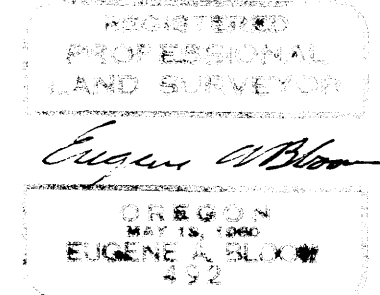 REGISTERED
PROFESSIONAL
LAND SURVEYOR
Eugene A Bloom
OREGON
MAY 15, 1960
EUGENE A. BLOOM
492